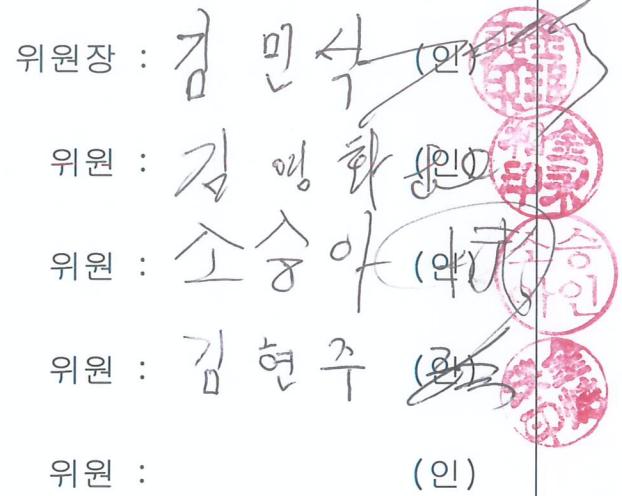 위원장 : 김민식 (인)
위원 : 김영화 (인)
위원 : 소승아 (인)
위원 : 김현주 (인)
위원 : (인)